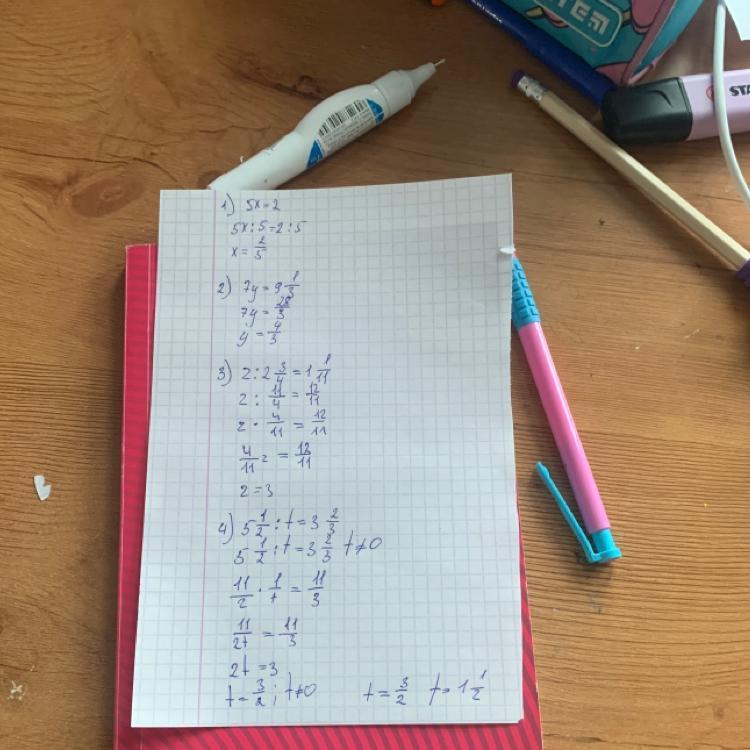 TEM
STA
1) 5x=2
5x:5=2:5
x=2/5
2) 7y=9 1/3
7y=28/3
y=4/3
3) z:2 3/4=1 1/11
z:11/4=12/11
z·4/11=12/11
4/11 z=12/11
z=3
4) 5 1/2:t=3 2/3
5 1/2:t=3 2/3 t≠0
11/2·1/t=11/3
11/2t=11/3
2t=3
t=3/2; t≠0 t=3/2 t=1 1/2